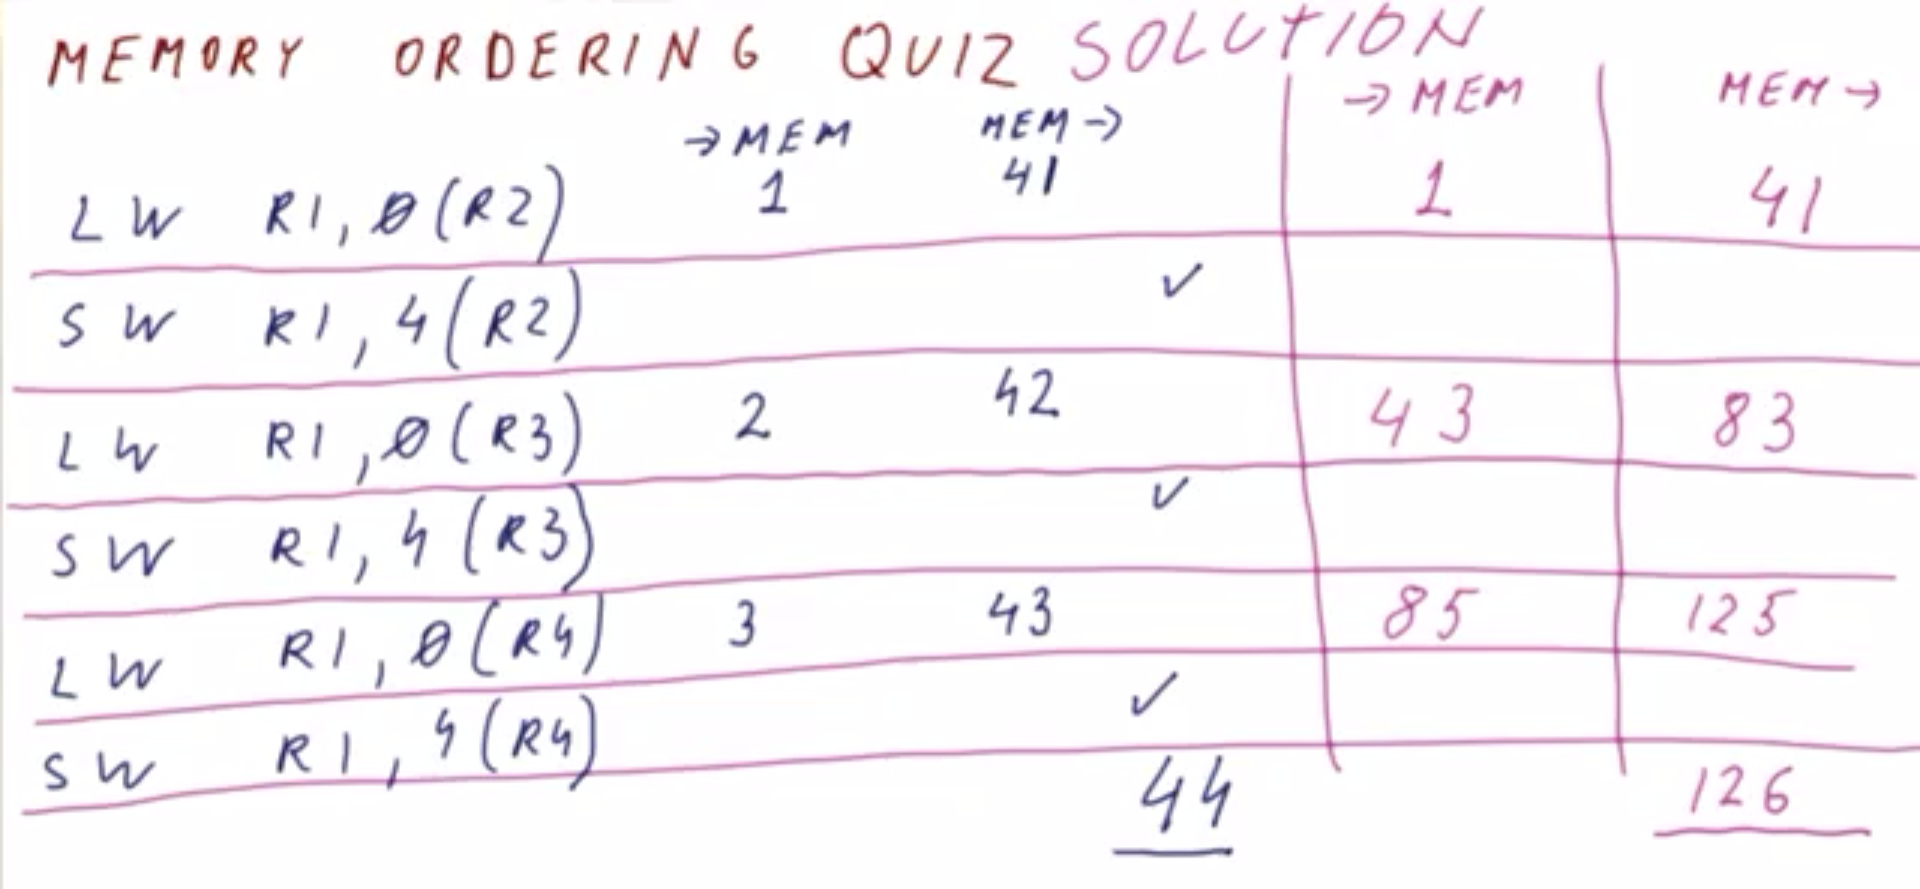 MEMORY ORDERING QUIZ SOLUTION
→MEM MEM→ →MEM MEM→
LW R1, 0(R2) 1 41 1 41
SW R1, 4(R2) ✓
LW R1, 0(R3) 2 42 43 83
SW R1, 4(R3) ✓
LW R1, 0(R4) 3 43 85 125
SW R1, 4(R4) ✓
44 126